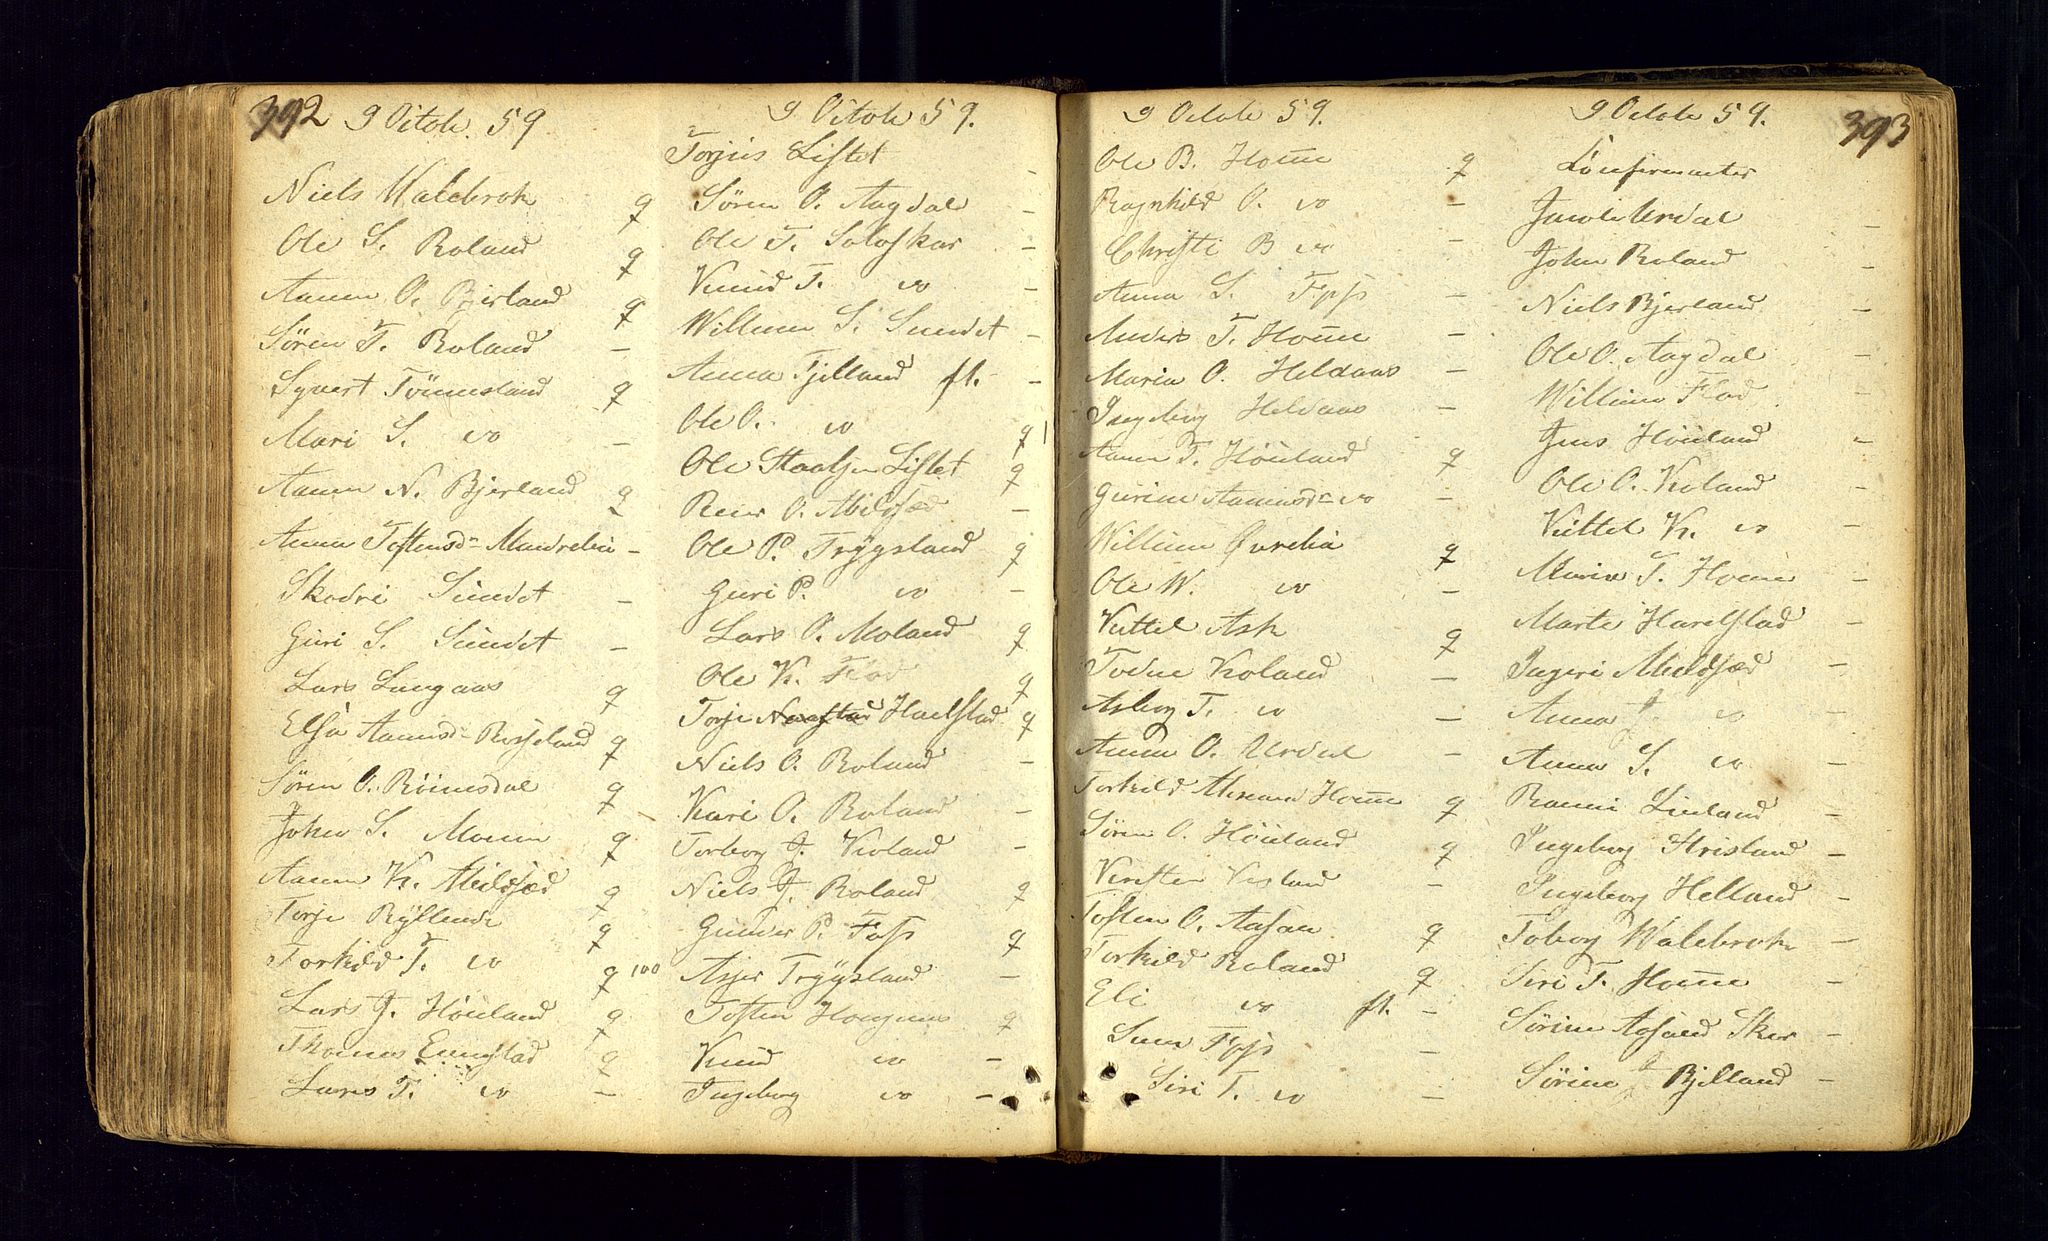 392 9 Octob. 59
Niels Walebrok g
Ole S. Roland g
Aanen O. Bjerland g
Søren T. Roland –
Syvert Tønnesland g
Mari S. do –
Aanen N. Bjerland g
Anna Tostensd. –
Skodvi Sundet –
Guri S. Sundet –
Lars Langaas g
Elsa Aanensd. Rosseland g
Søren O. Rømesdal g
John S. Moeen g
Aanen K. Mildsæd g
Torje Ryllende g
Torkild T. do g 100
Lars J. Høiland g
Thomas Eengstad g
Lars T. do –
9 Octob 59.
Torjus Listet –
Søren O. Aagdal –
Ole T. Soloskar –
Knud T. do –
William S. Sundet –
Anna Fjelland fl. –
Ole O. do g
Ole Staalsen Listet g
Reier O. Mildsæd –
Ole P. Trygsland g
Guri P. do –
Lars O. Moland g
Ole K. Flod g
Torje Harelstad g
Niels O. Roland –
Kari O. Roland –
Torborg J. Koland –
Niels J. Roland g
Gunder P. Foss g
Asjer Trygsland –
Tosten Hougens g
Knud do –
Ingeborg do –
9 Octob 59.
Ole B. Home g
Ragnhild O. do –
Christi B do –
Anna S. Foss –
Anders T. Home –
Maria O. Heldaas –
Ingeborg Heldaas –
Aanen T. Høiland g
Gurine Aanensd. do –
William Øvrebø g
Ole W. do –
Kittel Ask g
Todne Koland –
Asborg T. do –
Anna O. Urdal –
Torkild Home g
Søren O. Høiland g
Kirsten –
Tosten O. Aasen g
Torkild Roland g
Eli do fl. –
Sune Foss –
Siri T. do –
9 Octob 59. 393
Confirmanter
Jacob Urdal –
John Roland –
Niels Bjerland –
Ole O. Aagdal –
William Flod –
Jens Høiland –
Ole O. Koland –
Kittel K. do –
Maria T. Home –
Marte Harelstad –
Ingeri Mildsæd –
Anna J. do –
Anna S. do –
Ranni Lieland –
Ingeborg Strisland –
Ingeborg Helland –
Toborg Walebrok –
Siri T. Home –
Sørine Aasland Sker –
Sørine J Bjelland –